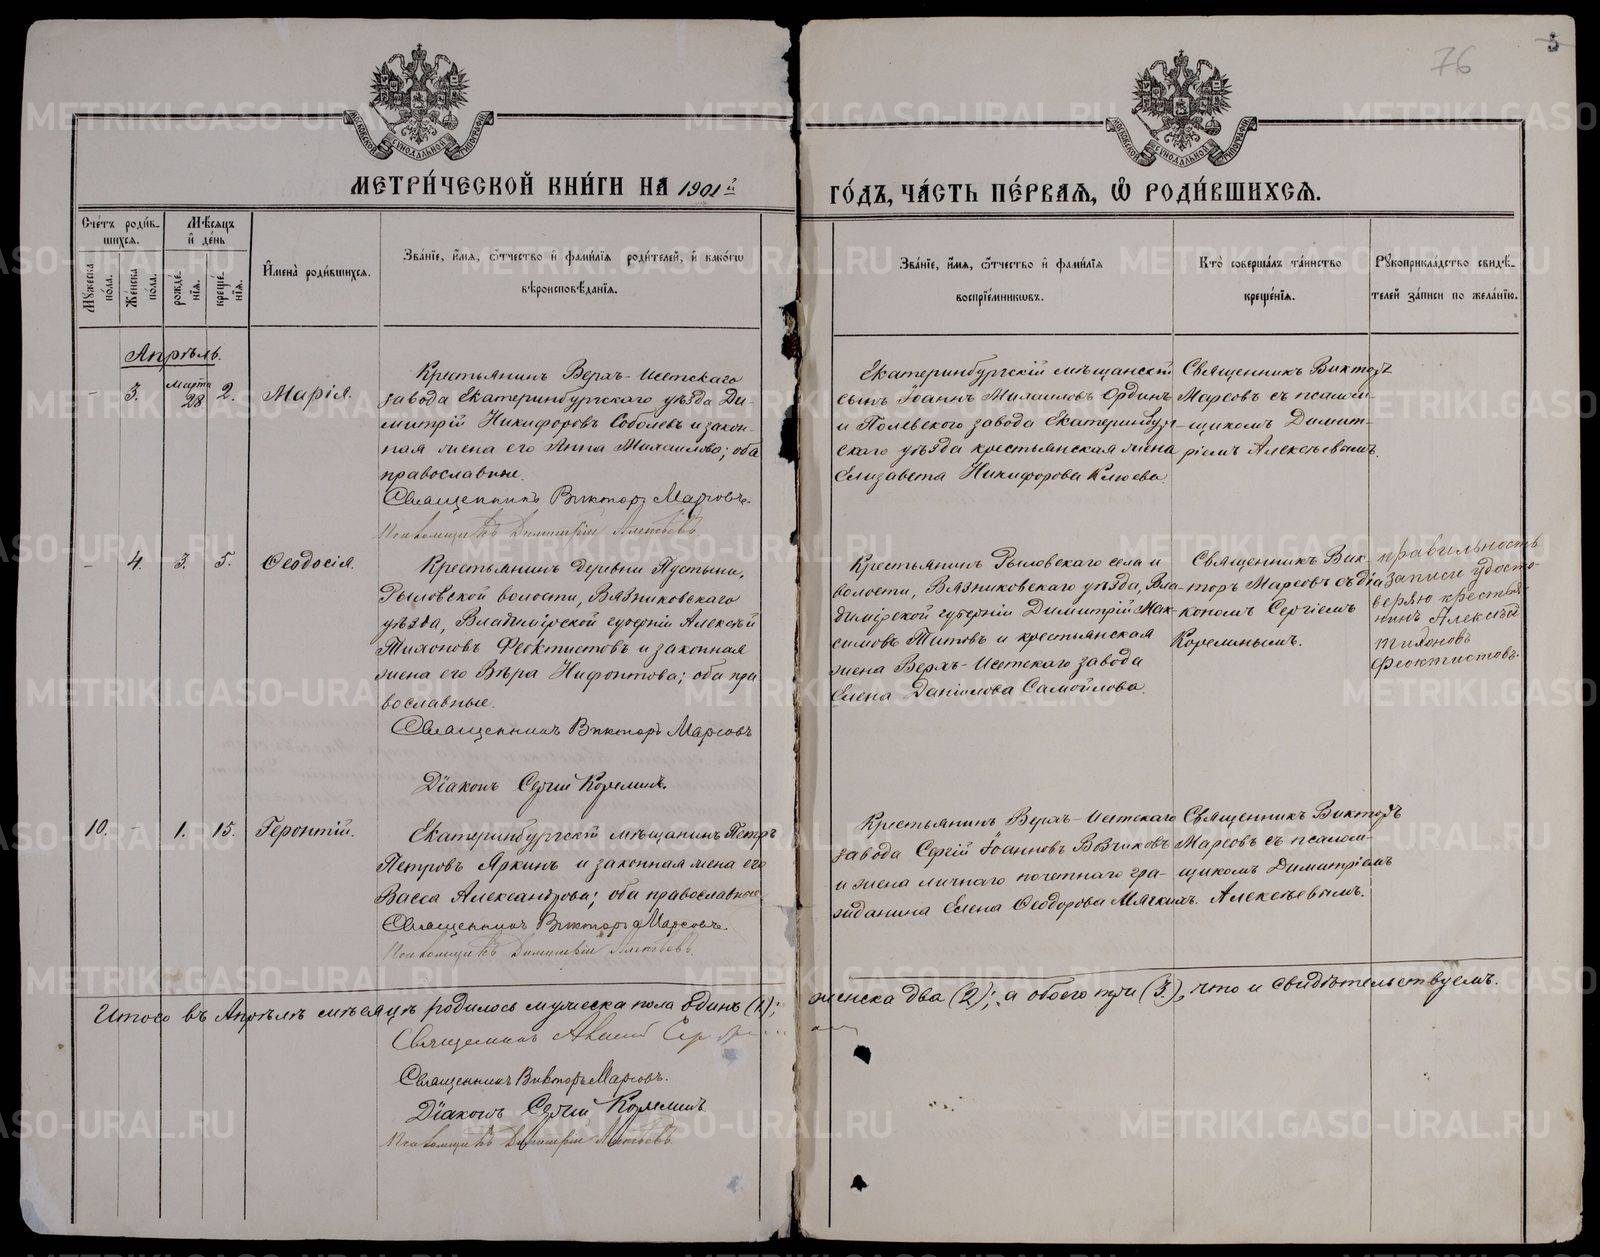 76
МОСКОВСКОЙ СѴНОДАЛЬНОЙ ТИПОГРАФІИ
МОСКОВСКОЙ СѴНОДАЛЬНОЙ ТИПОГРАФІИ
МЕТРИ́ЧЕСКОЙ КНИ́ГИ НА 1901й ГО́ДЪ, ЧА́СТЬ ПЕ́РВАЯ, Ѡ РОДИ́ВШИХСЯ.
Сче́тъ роди́в-
шихся.
Мѣ́сяцъ
и де́нь
Мꙋ́жеска по́ла.
Же́нска по́ла.
рожде́-
нія.
креще́-
нія.
И҆мена̀ роди́вшихся.
Зва́ніе, и҆́мя, ѻ҆́тчество и҆ фами́лія роди́телей, и҆ како́гѡ
вѣроисповѣ́данія.
Зва́ніе, и҆́мя, ѻ҆́тчество и҆ фами́лія
воспріе́мникѡвъ.
Кто̀ соверша́лъ та́инство
креще́нія.
Рꙋкоприкла́дство свидѣ́-
телей за́писи по жела́нію.
Апрѣль.
- 3. Марта 28 2. Марія.
Крестьянинъ Верхъ-Исетскаго
завода Екатеринбургскаго уѣзда Ди-
митрій Никифоровъ Соболевъ и закон-
ная жена его Анна Михаилова; оба
православные.
Священникъ Викторъ Марсовъ.
Псаломщикъ Димитрій Алексѣевъ
Екатеринбургскій мѣщанскій
сынъ Іоаннъ Михаиловъ Ординъ
и Полевского завода Екатеринбург-
скаго уѣзда крестьянская жена
Елизавета Никифорова Клюева.
Священникъ Викторъ
Марсовъ съ псалом-
щикомъ Димит-
ріемъ Алексѣевымъ.
- 4. 3. 5. Ѳеодосія.
Крестьянинъ деревни Пустыни,
Рыловской волости, Вязниковскаго
уѣзда, Владимірской губерніи Алексѣй
Тихоновъ Феоктистовъ и законная
жена его Вѣра Нифонтова; оба пра
вославные.
Священникъ Викторъ Марсовъ
Діаконъ Сергій Корелинъ.
Крестьянинъ Рыловскаго села и
волости, Вязниковскаго уѣзда, Вла-
димірской губерніи Димитрій Мак-
симовъ Титовъ и крестьянская
жена Верхъ-Исетскаго завода
Елена Даніилова Самойлова.
Священникъ Вик-
торъ Марсовъ съ діа
кономъ Сергіемъ
Корелинымъ.
правильность
записи удосто-
вѣряю крестья-
нинъ Алексѣй
Тихоновъ
Феоктистовъ.
10. - 1. 15. Геронтій.
Екатеринбургскій мѣщанинъ Петръ
Петровъ Яркинъ и законная жена его
Васса Александрова; оба православные.
Священникъ Викторъ Марсовъ.
Псаломщикъ Димитрій Алексѣевъ.
Крестьянинъ Верхъ-Исетскаго
завода Сергій Іоанновъ Вовчиковъ
и жена личнаго почетнаго гра-
жданина Елена Ѳеодорова Мягкихъ.
Священникъ Викторъ
Марсовъ съ псалом-
щикомъ Димитріемъ
Алексѣевымъ.
Итого въ Апрѣлѣ мѣсяцѣ родилось мужеска пола одинъ (1); женска два (2); а обоего три (3), что и свидѣтельствуемъ.
Священникъ
Священникъ Викторъ Марсовъ.
Діаконъ Сергій Корелинъ
Псаломщикъ Димитрій Алексѣевъ
METRIKI.GASO-URAL.RU